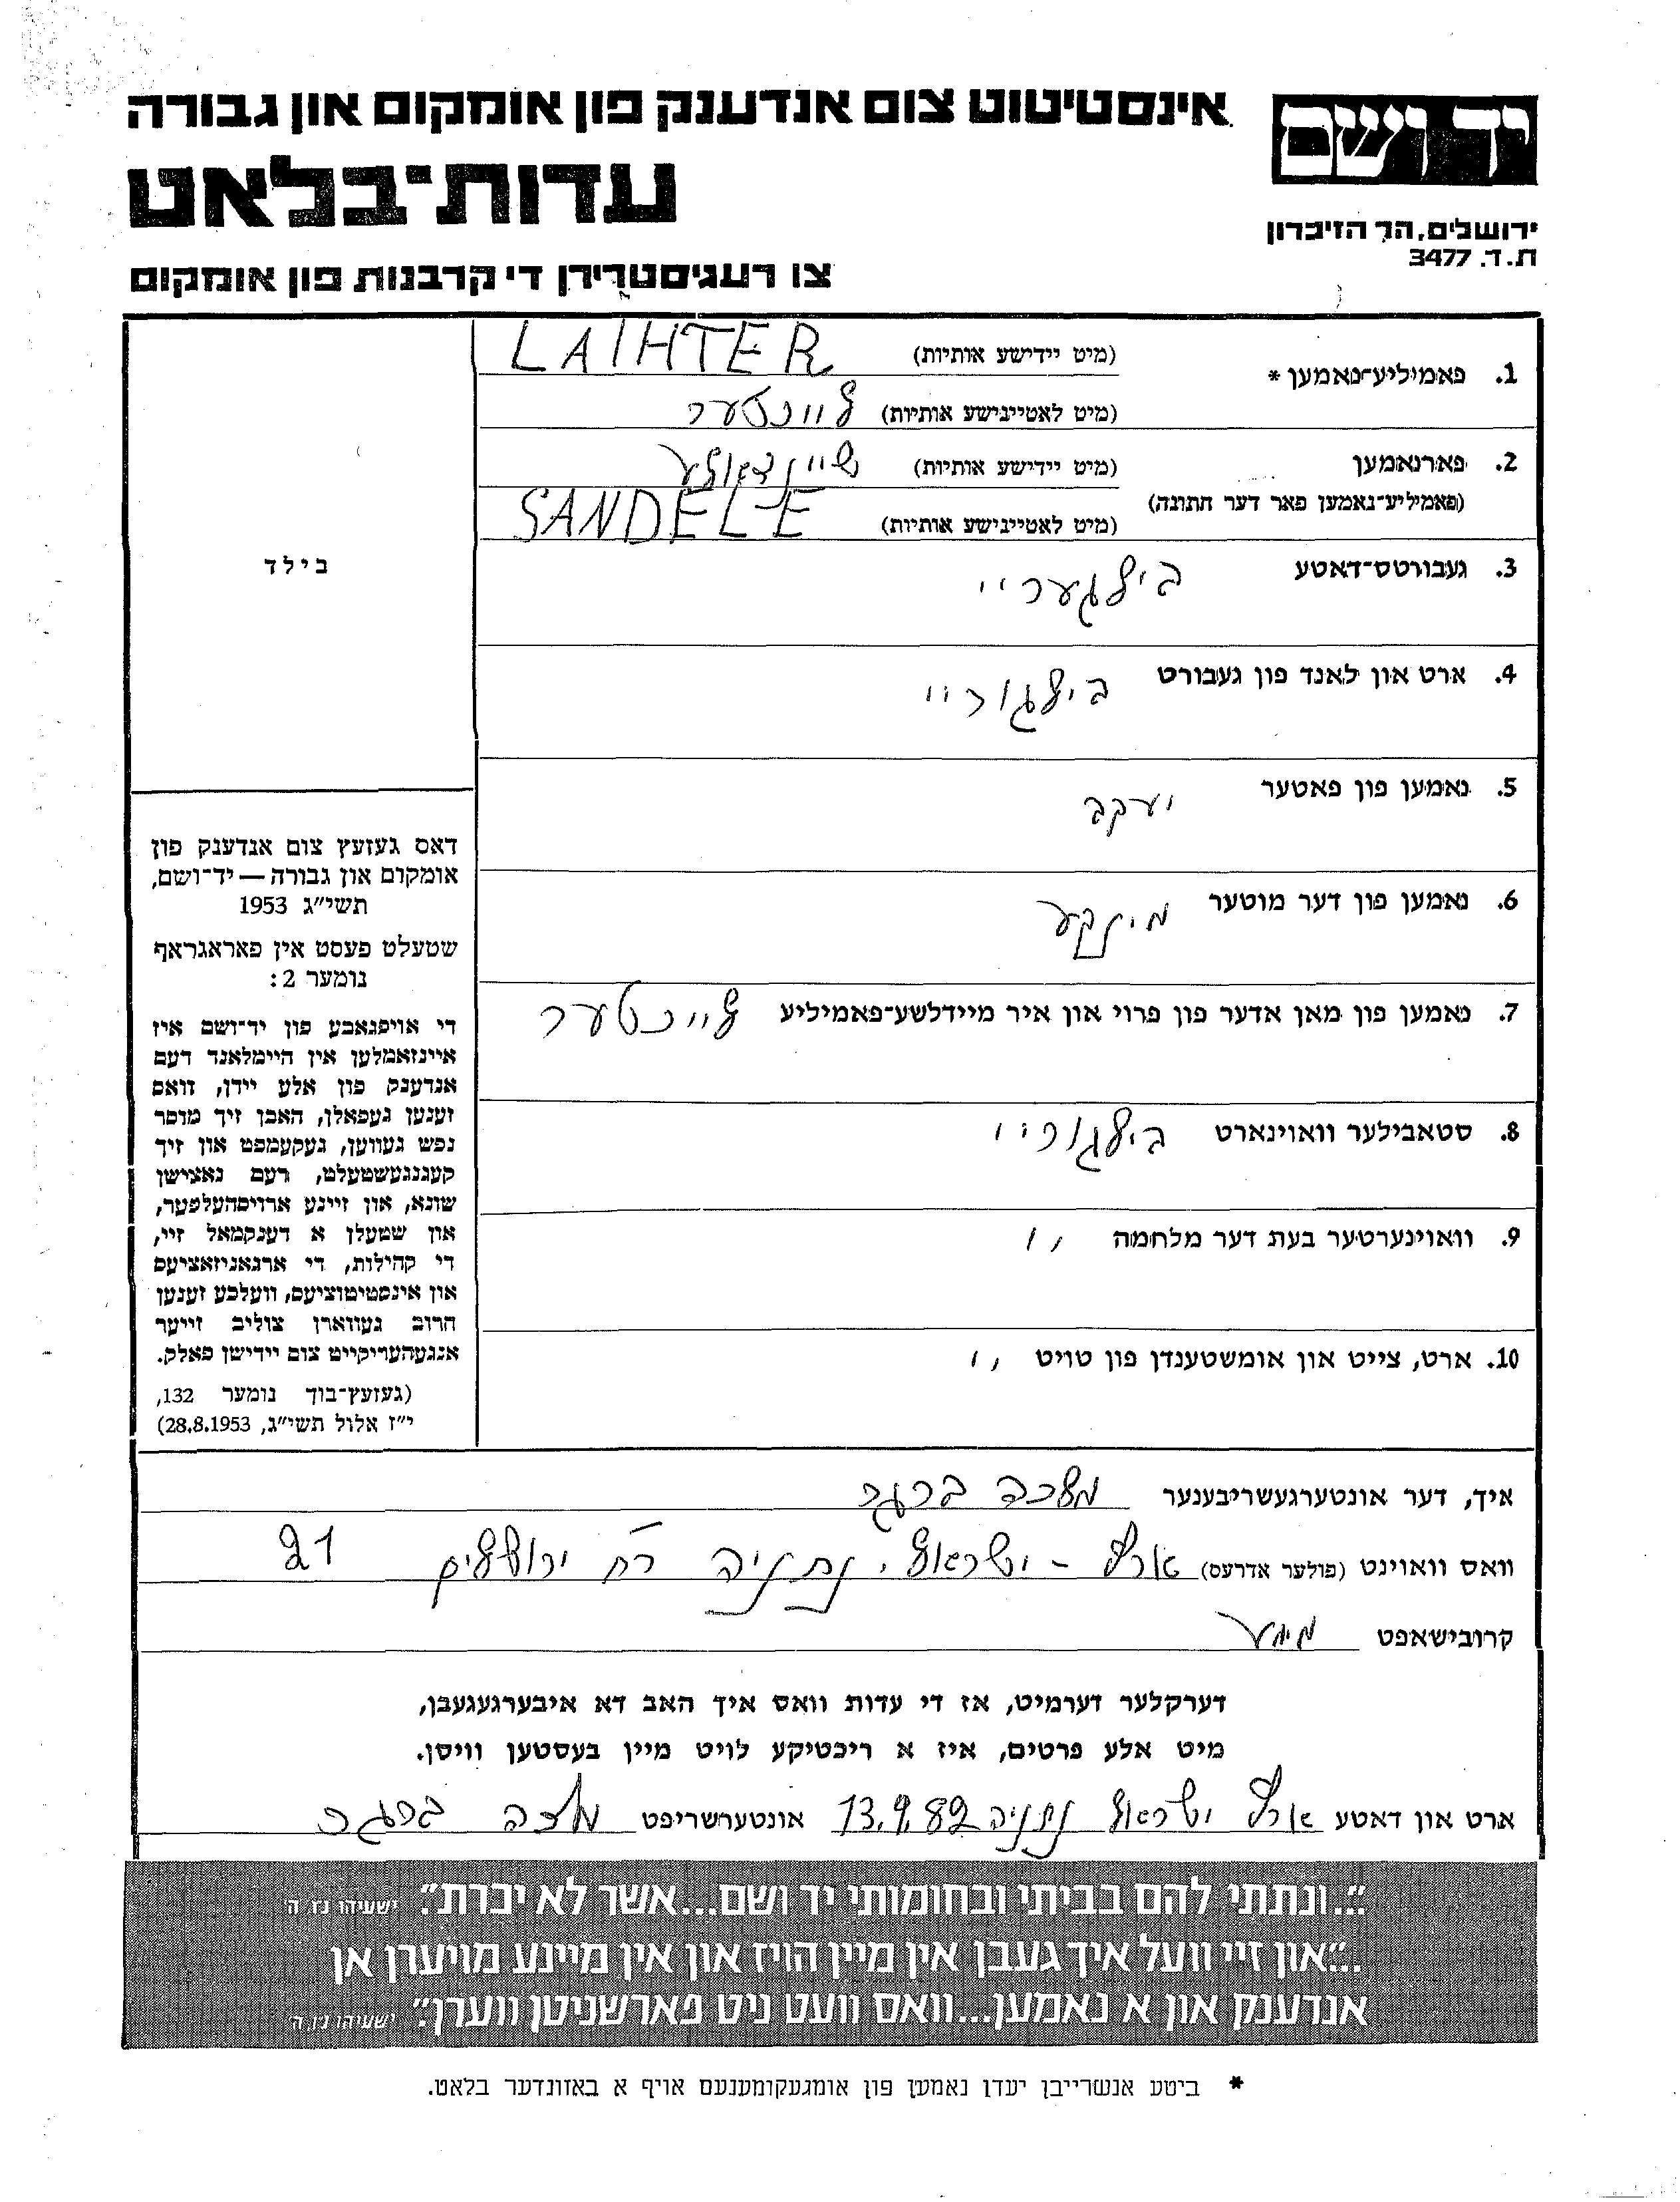 אינסטיטוט צום אנדענק פון אומקום און גבורה
יד ושם
עדות־בלאט
ירושלים, הר הזיכרון
ת.ד. 3477
צו רעגיסטרירן די קרבנות פון אומקום
1. פאמיליע־נאמען * (מיט יידישע אותיות) LAIHTER
(מיט לאטייניشע אותיות) לייכטער
2. פארנאמען (מיט יידישע אותיות) שיינדעלע
(פאמיליע־נאמען פאר דער חתונה) (מיט לאטיינישע אותיות) SANDELE
3. געבורטס־דאטע בילגעריי
4. ארט און לאנד פון געבורט בילגוריי
5. נאמען פון פאטער יעקב
6. נאמען פון דער מוטער מינקע
7. נאמען פון מאן אדער פון פרוי און איר מיידלשע־פאמיליע לייכטער
8. סטאבילער וואוינארט בילגוריי
9. וואוינערטער בעת דער מלחמה ,,
10. ארט, צייט און אומשטענדן פון טויט ,,
בילד
דאס געזעץ צום אנדענק פון
אומקום און גבורה — יד־ושם,
תשי״ג 1953
שטעלט פעסט אין פאראגראף
נומער 2:
די אויפגאבע פון יד־ושם איז
איינזאמלען אין היימלאנד דעם
אנדענק פון אלע יידן, וואס
זענען געפאלן, האבן זיך מוסר
נפש געווען, געקעמפט און זיך
קעגנגעשטעלט, דעם נאצישן
שונא, און זיינע ארויסהעלפער,
און שטעלן א דענקמאל זיי,
די קהילות, די ארגאניזאציעס
און אינסטיטוציעס, וועלכע זענען
חרוב געווארן צוליב זייער
אנגעהעריקייט צום יידישן פאלק.
(געזעץ־בוך נומער 132,
י״ז אלול תשי״ג, 28.8.1953)
איך, דער אונטערגעשריבענער מלכה ברגר
וואס וואוינט (פולער אדרעס) ארץ - ישראל, נתניה רח ירושלים 21
קרובישאפט
דערקלער דערמיט, אז די עדות וואס איך האב דא איבערגעגעבן,
מיט אלע פרטים, איז א ריכטיקע לויט מיין בעסטען וויסן.
ארט און דאטע ארץ ישראל נתניה 13.9.82 אונטערשריפט מלכה ברגר
״...ונתתי להם בביתי ובחומותי יד ושם...אשר לא יכרת״. ישעיהו נו, ה
...״און זיי וועל איך געבן אין מיין הויז און אין מיינע מויערן אן
אנדענק און א נאמען...וואס וועט ניט פארשניטן ווערן״. ישעיהו נו, ה
* ביטע אנשרייבן יעדן נאמען פון אומגעקומענעם אויף א באזונדער בלאט.